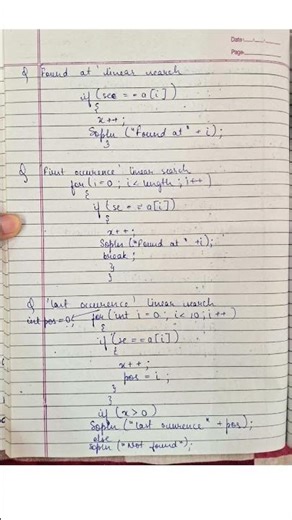 Date: / /
Page
Q Found at' linear search
if (se = = a[i])
{
x++;
Sopln ("Found at" + i);
}
Q 'First occurence' linear search
for (i = 0 ; i < length ; i++)
{
if (se = = a[i])
{
x++;
Sopln ("Found at" +i);
break;
}
}
Q 'last occurence' linear search
int pos = 0; for (int i = 0 ; i < 10 ; i++)
{
if (se = = a[i])
{
x++;
pos = i;
}
}
if (x > 0)
Sopln ("last occurence" + pos);
else
Sopln ("Not found");